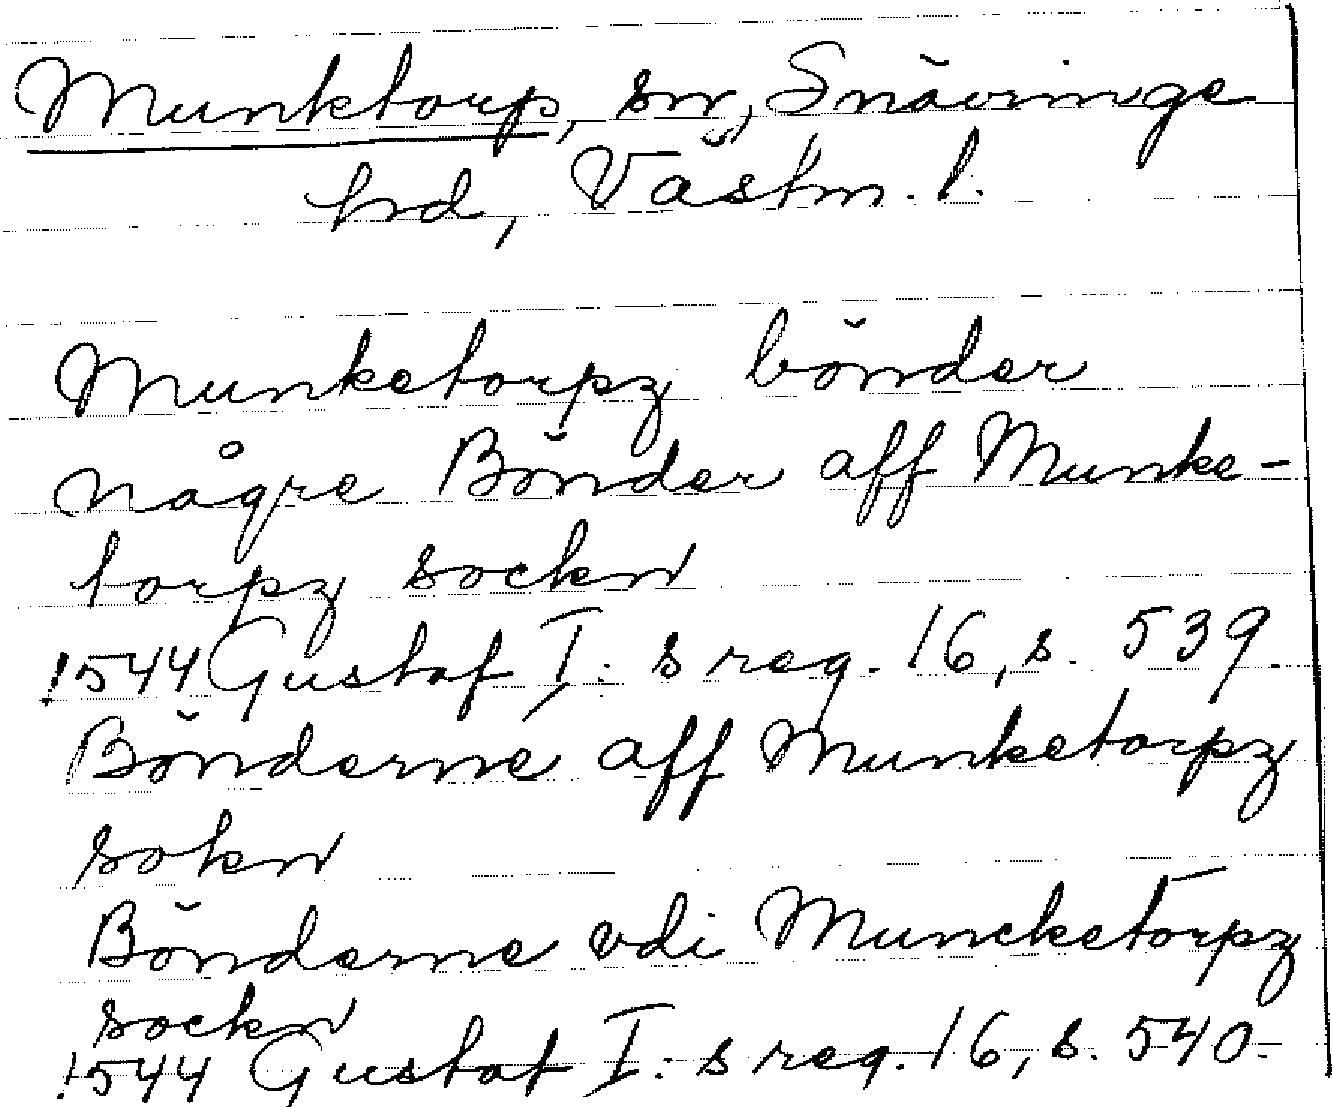 Munktorp, sn, Snävinge
hrd, Västm. l.
Munketorpz bönder
någre Bönder aff Munke-
torpz sockn
1544 Gustaf I:s reg. 16, s. 539.
Bönderne aff Munketorpz
sokn
Bönderne vdi Muncketorpz
sockn
1544 Gustaf I:s reg. 16, s. 540.